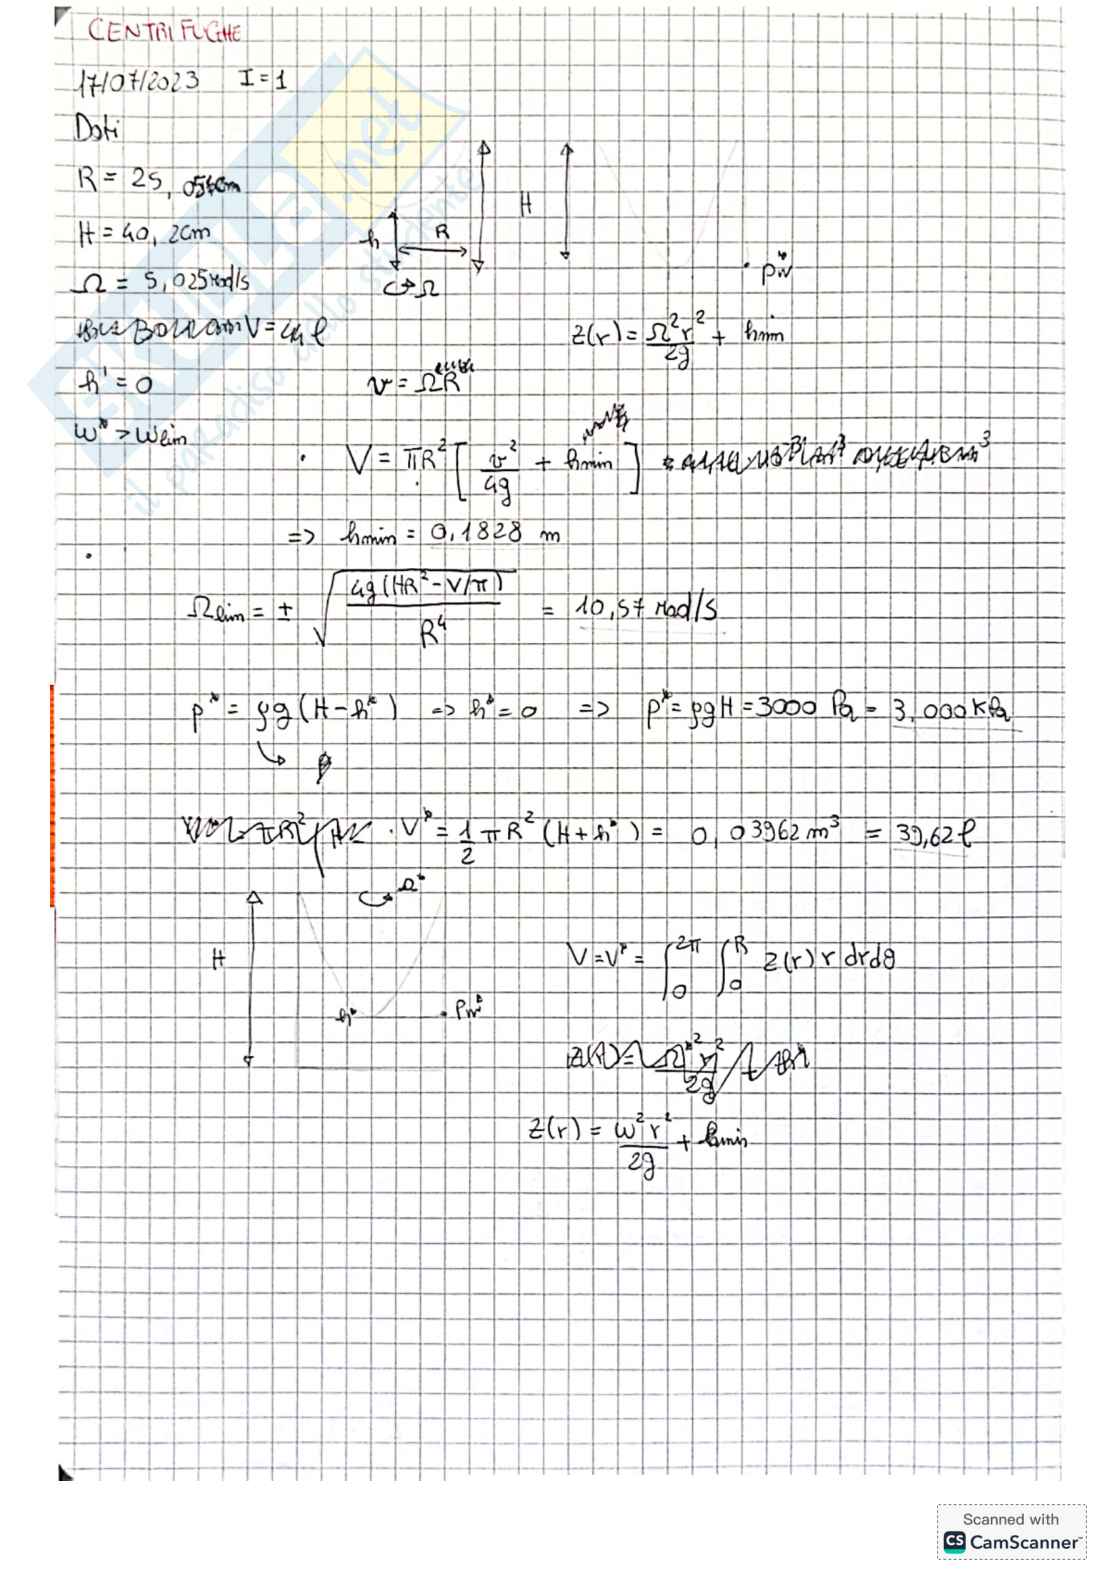 CENTRIFUGHE
17/07/2023 I=1
Dati
R = 25,
H = 40,2cm
Ω = 5,025 rad/s
V=44 l
h' = 0
ω* > ωlim
h
R
Ω
H
pw*
z(r) = Ω²r²/2g + hmin
v = ΩR
V = πR² [ v²/4g + hmin ]
=> hmin = 0,1828 m
Ωlim = ± √(4g(HR² - V/π)/R⁴) = 10,57 rad/s
p* = ρg(H-h*) => h* = 0 => p* = ρgH = 3000 Pa = 3,000 kPa
V* = 1/2 πR² (H+h*) = 0,03962 m³ = 39,62 l
Ω*
H
h*
Pw*
V = V* = ∫₀^2π ∫₀^R z(r) r dr dθ
z(r) = ω²r²/2g + hmin
il paradiso dello studente
Scanned with
CS CamScanner